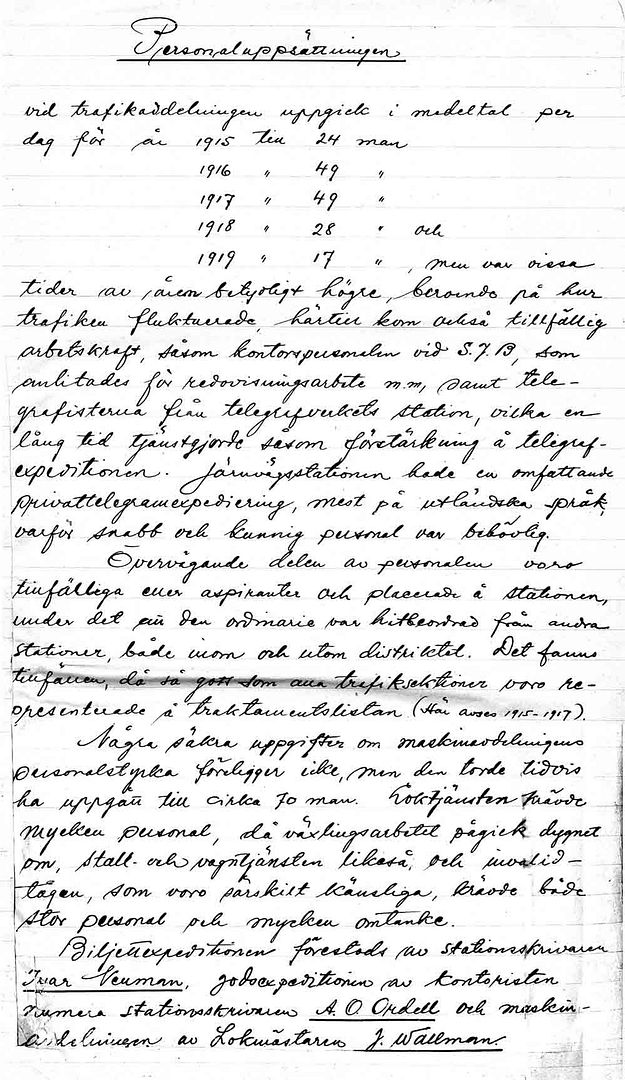 Personaluppsättningen
vid trafikavdelningen uppgick i medeltal per
dag för år 1915 till 24 man
1916 " 49 "
1917 " 49 "
1918 " 28 " och
1919 " 17 " , men var vissa
tider av åren betydligt högre, beroende på hur
trafiken fluktuerade, härtill kom också tillfällig
arbetskraft, såsom kontorspersonalen vid S.J.B, som
anlitades för redovisningsarbete m.m, samt tele-
grafisterna från telegrafverkets station, vilka en
lång tid tjänstgjorde såsom förstärkning å telegraf-
expeditionen. Järnvägsstationen hade en omfattande
privattelegramexpediering, mest på utländska språk,
varför snabb och kunnig personal var behövlig.
Övervägande delen av personalen voro
tillfälliga eller aspiranter och placerade å stationen,
under det att den ordinarie var hitbeordrad från andra
stationer, både inom och utom distriktet. Det fanns
tillfällen, då så gott som alla trafiksektioner voro re-
presenterade å traktamentslistan (Här avses 1915-1917).
Några säkra uppgifter om maskinavdelningens
personalstyrka föreligger icke, men den torde tidvis
ha uppgått till cirka 70 man. Loktjänsten krävde
mycken personal, då växlingsarbetet pågick dygnet
om, stall- och vagntjänsten likeså, och invalid-
tågen, som voro särskilt känsliga, krävde både
stor personal och mycken omtanke.
Biljettexpeditionen förestods av stationsskrivaren
Ivar Neuman, godsexpeditionen av kontoristen
numera stationsskrivaren A. O. Ordell och maskin-
avdelningen av Lokmästaren J. Wallman.